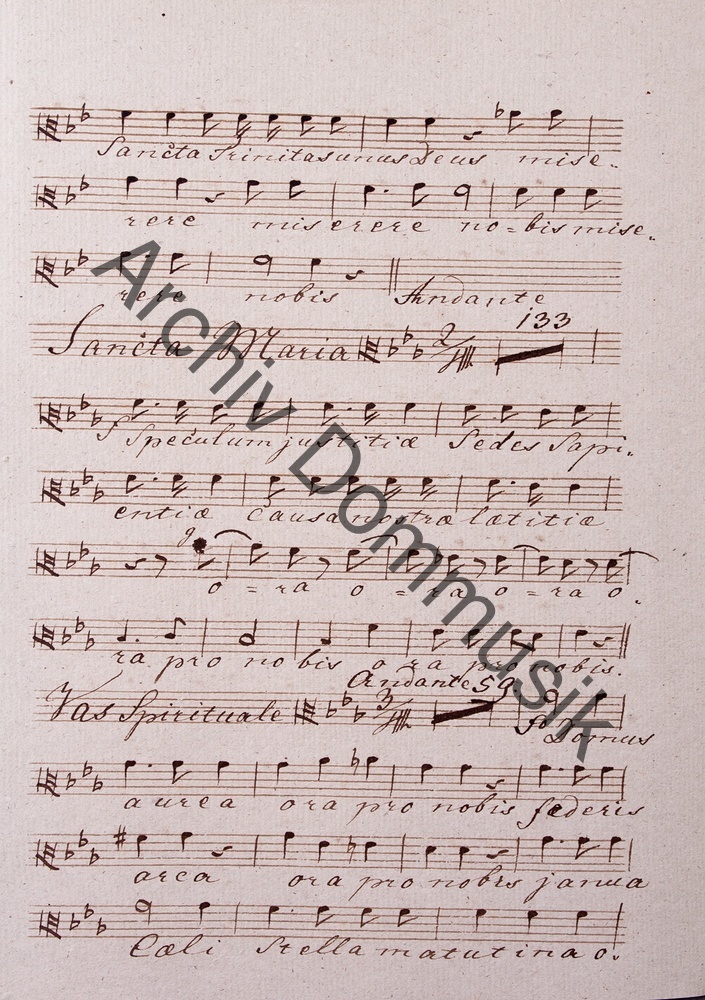 Sancta Trinitas unus Deus mise-
rere miserere no=bis mise-
rere nobis Andante
133
Sancta Maria 2/4
f Speculum justitiæ Sedes Sapi-
entiæ Causa nostræ lætitiæ
o = ra o = ra o = ra o-
ra pro nobis o ra pro nobis.
Andante 59
Vas Spirituale 3/4
fo Domus
aurea ora pro nobis fæderis
arca ora pro nobis janua
Cæli Stella matutina o-
Archiv Dommusik